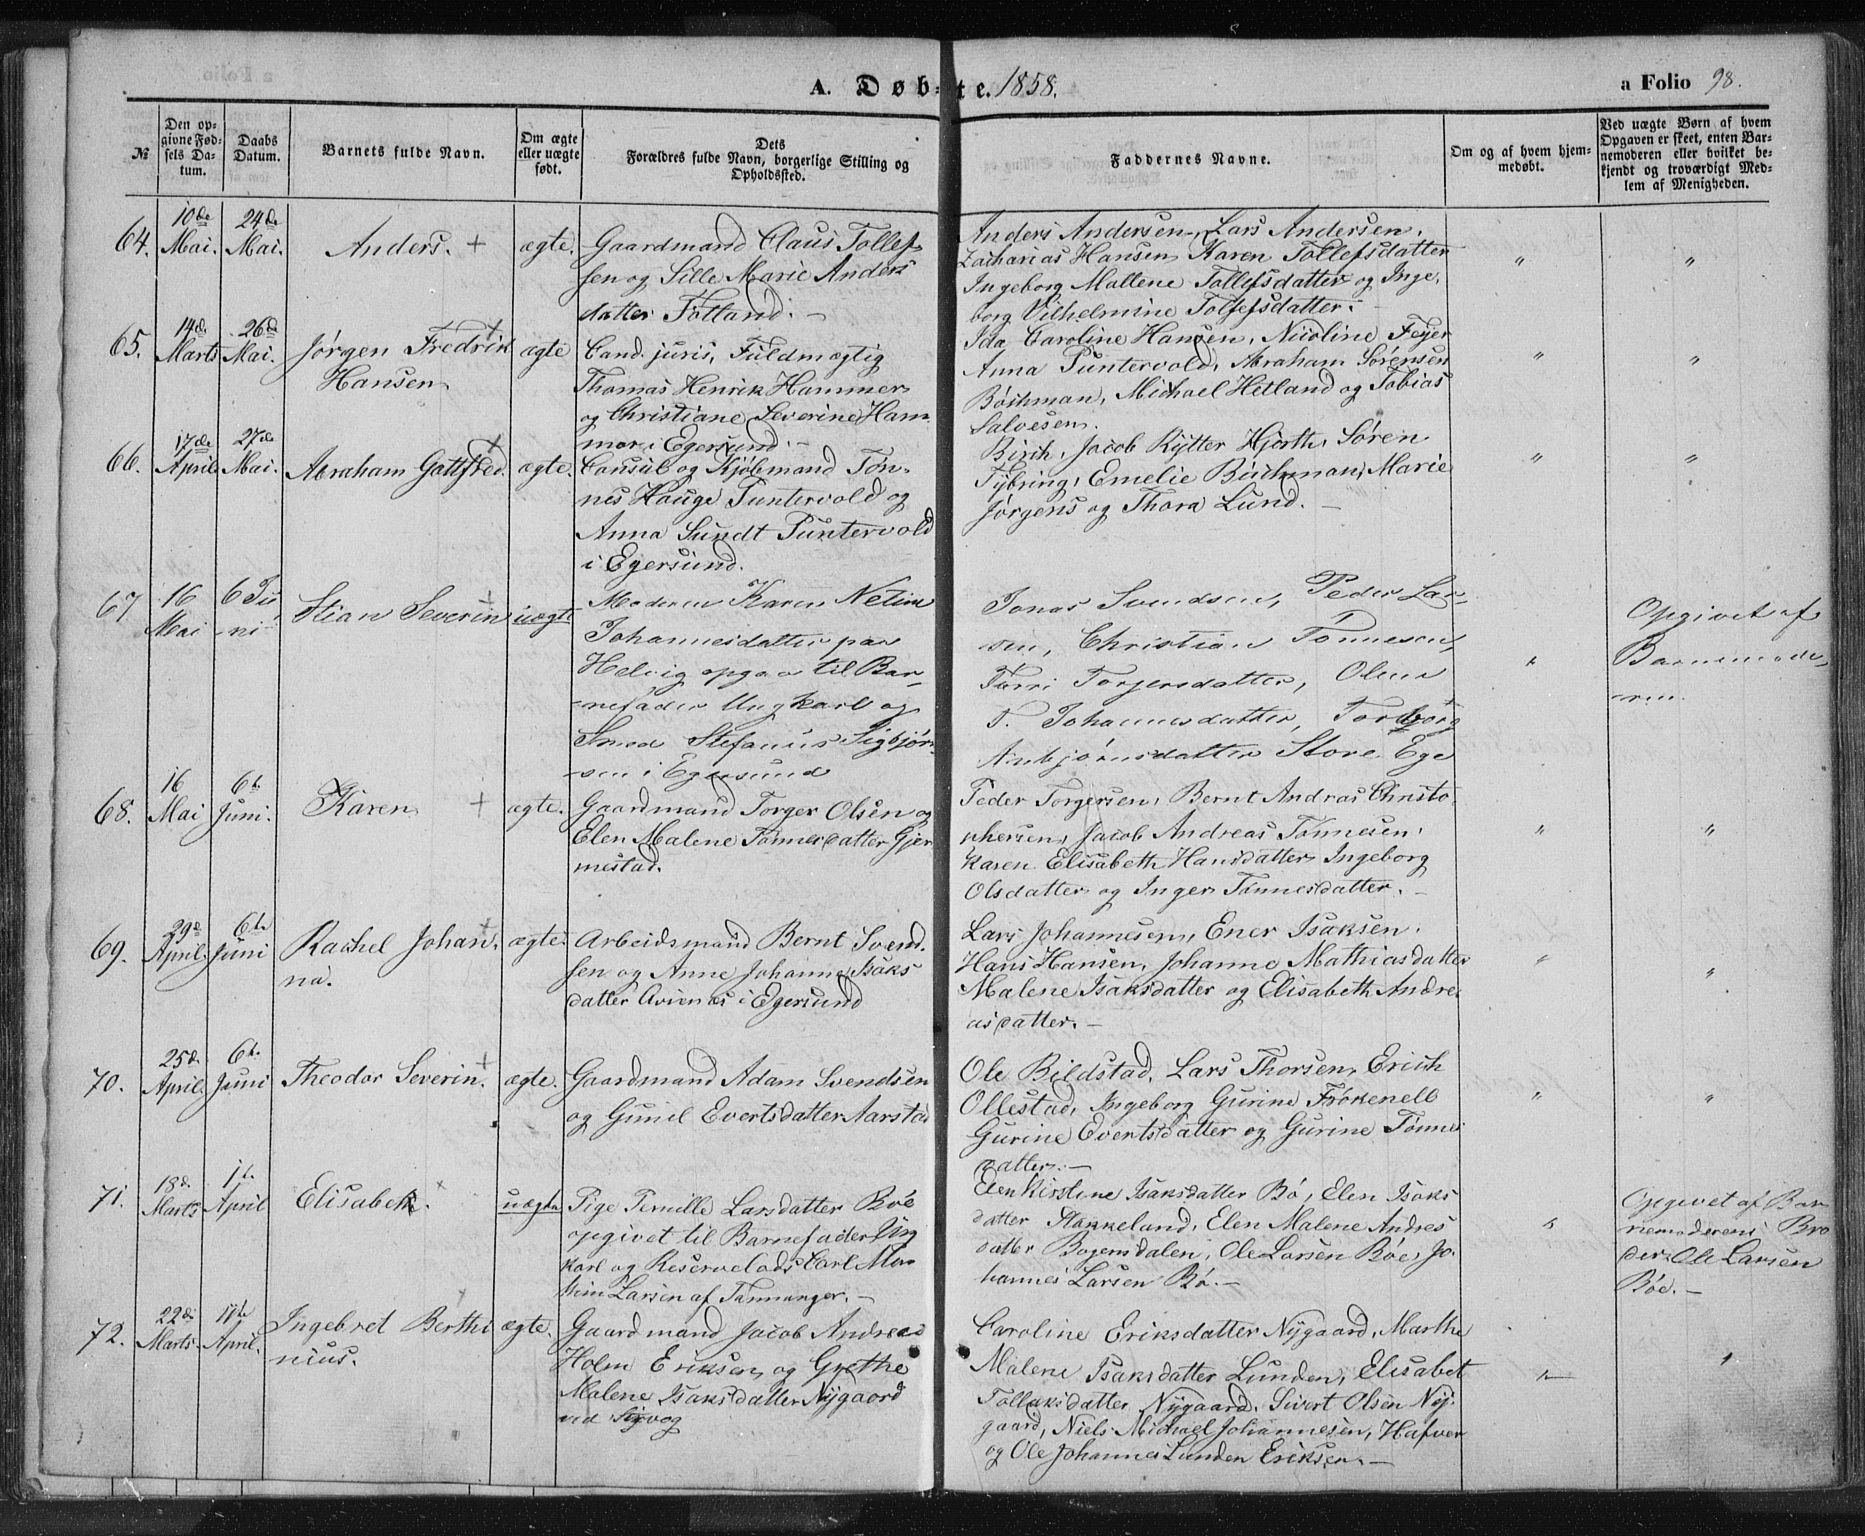 A. Døbte. 1858.
a Folio 98.
№
Den opgivne Fødsels Datum.
Daabs Datum.
Barnets fulde Navn.
Om ægte eller uægte født.
Dets Forældres fulde Navn, borgerlige Stilling og Opholdssted.
Faddernes Navne.
Om og af hvem hjemmedøbt.
Ved uægte Børn af hvem Opgaven er skeet, enten Barnemoderen eller hvilket bekjendt og troværdigt Medlem af Menigheden.
64. 10de Mai. 24de Mai. Anders. + ægte.
Gaardmand Claus Tollef
sen og Sille Marie Anders
datter Fotland. —
Anders Andersen, Lars Andersen,
Zacharias Hansen, Karen Tollefsdatter
Ingeborg Mallene Tollefsdatter og Inge,
borg Vilhelmine Tollefsdatter. —
" "
65. 14de Marts 26de Mai. Jørgen Fredrik + ægte
Hansen
Cand. juris, Fuldmægtig
Thomas Henrik Hammer
og Christiane Severine Ham
mer i Egersund. —
Ida Caroline Hansen, Nicoline Feyer
Anna Puntervold, Abraham Sørensen
Bøchman, Michael Hetland og Tobias
Salvesen.
" "
66. 17de April. 27de Mai. Abraham Gottfred. + ægte.
Consul og Kjøbmand Tøn-
nes Hauge Puntervold og
Anna Sundt Puntervold
i Egersund.
Birch, Jacob Rytter Hjorth, Sören
Tybring, Emelie Büchman, Marie
Jørgens og Thora Lund. —
" "
67 16 Mai 6 Ju
ni Stian Severin + uægte
Moderen Karen Neline
Johannesdatter paa
Helvig opgav til Bar-
nefader Ungkarl og
Smed Stefanus Sigbjør
sen i Egersund
Jonas Svendsen, Peder Lar-
sen, Christian Tönnesen,
Torri Torgersdatter, Olene
T. Johannesdatter, Torborg
Anbjörnsdatter Store Ege
"
Opgivet af
Barnemode-
ren.
68. 16 Mai 6te Juni. Karen + ægte.
Gaardmand Torger Olsen og
Elen Malene Tønnesdatter Gjer
mestad.
Peder Torgersen, Bernt Andras Christo
phersen, Jacob Andreas Tønnesen.
Karen Elisabeth Hansdatter Ingeborg
Olsdatter og Inger Tønnesdatter. —
" "
69. 29de April. 6te Juni Rachel Johan + ægte.
na.
Arbeidsmand Bernt Svend.
sen og Anne Johanne Isaks
datter Arienæs i Egersund
Lars Johannesen, Ener Isaksen.
Hans Hansen, Johanne Mathiasdatter
Malene Isaksdatter og Elisabeth Andre.
asdatter. —
" "
70. 25de April. 6te Juni Theodor Severin. + ægte.
Gaardmand Adam Svendsen
og Guniel Evertsdatter Aarstad
Ole Bildstad, Lars Thorsen, Erich
Ollestad, Ingeborg Gurine Frøkenell
Gurine Evertsdatter og Gurine Tønnes
datter. —
" "
71. 18de Marts 1te April Elisabeth. + uægte
Pige Pernille Larsdatter Böe
opgivet til Barnefader Ung
karl og Reservelods Carl Mon
Larsen af Tannanger. —
Elen Kirstine Isaksdatter Bö, Elen Isaks
datter Stakkeland, Elen Malene Andres
datter Bogensdalen, Ole Larsen Böe, Jo.
hannes Larsen Bö. —
"
Opgivet af Bar
nemoderens Bro
der Ole Larsen
Böe. —
72. 22de Marts. April. Ingebret Berthi + ægte.
nius.
Gaardmand Jacob Andreas
Holm Eriksen og Grethe
Malene Isaksdatter Nygaard
ved Sirvog
Caroline Eriksdatter Nygaard, Marthe
Malene Isaksdatter Lunden, Elisabet
Tollaksdatter Nygaard. Sivert Olsen Ny-
gaard, Niels Michael Johannesen, Hafver
og Ole Johannes Lunden Eriksen. —
" "